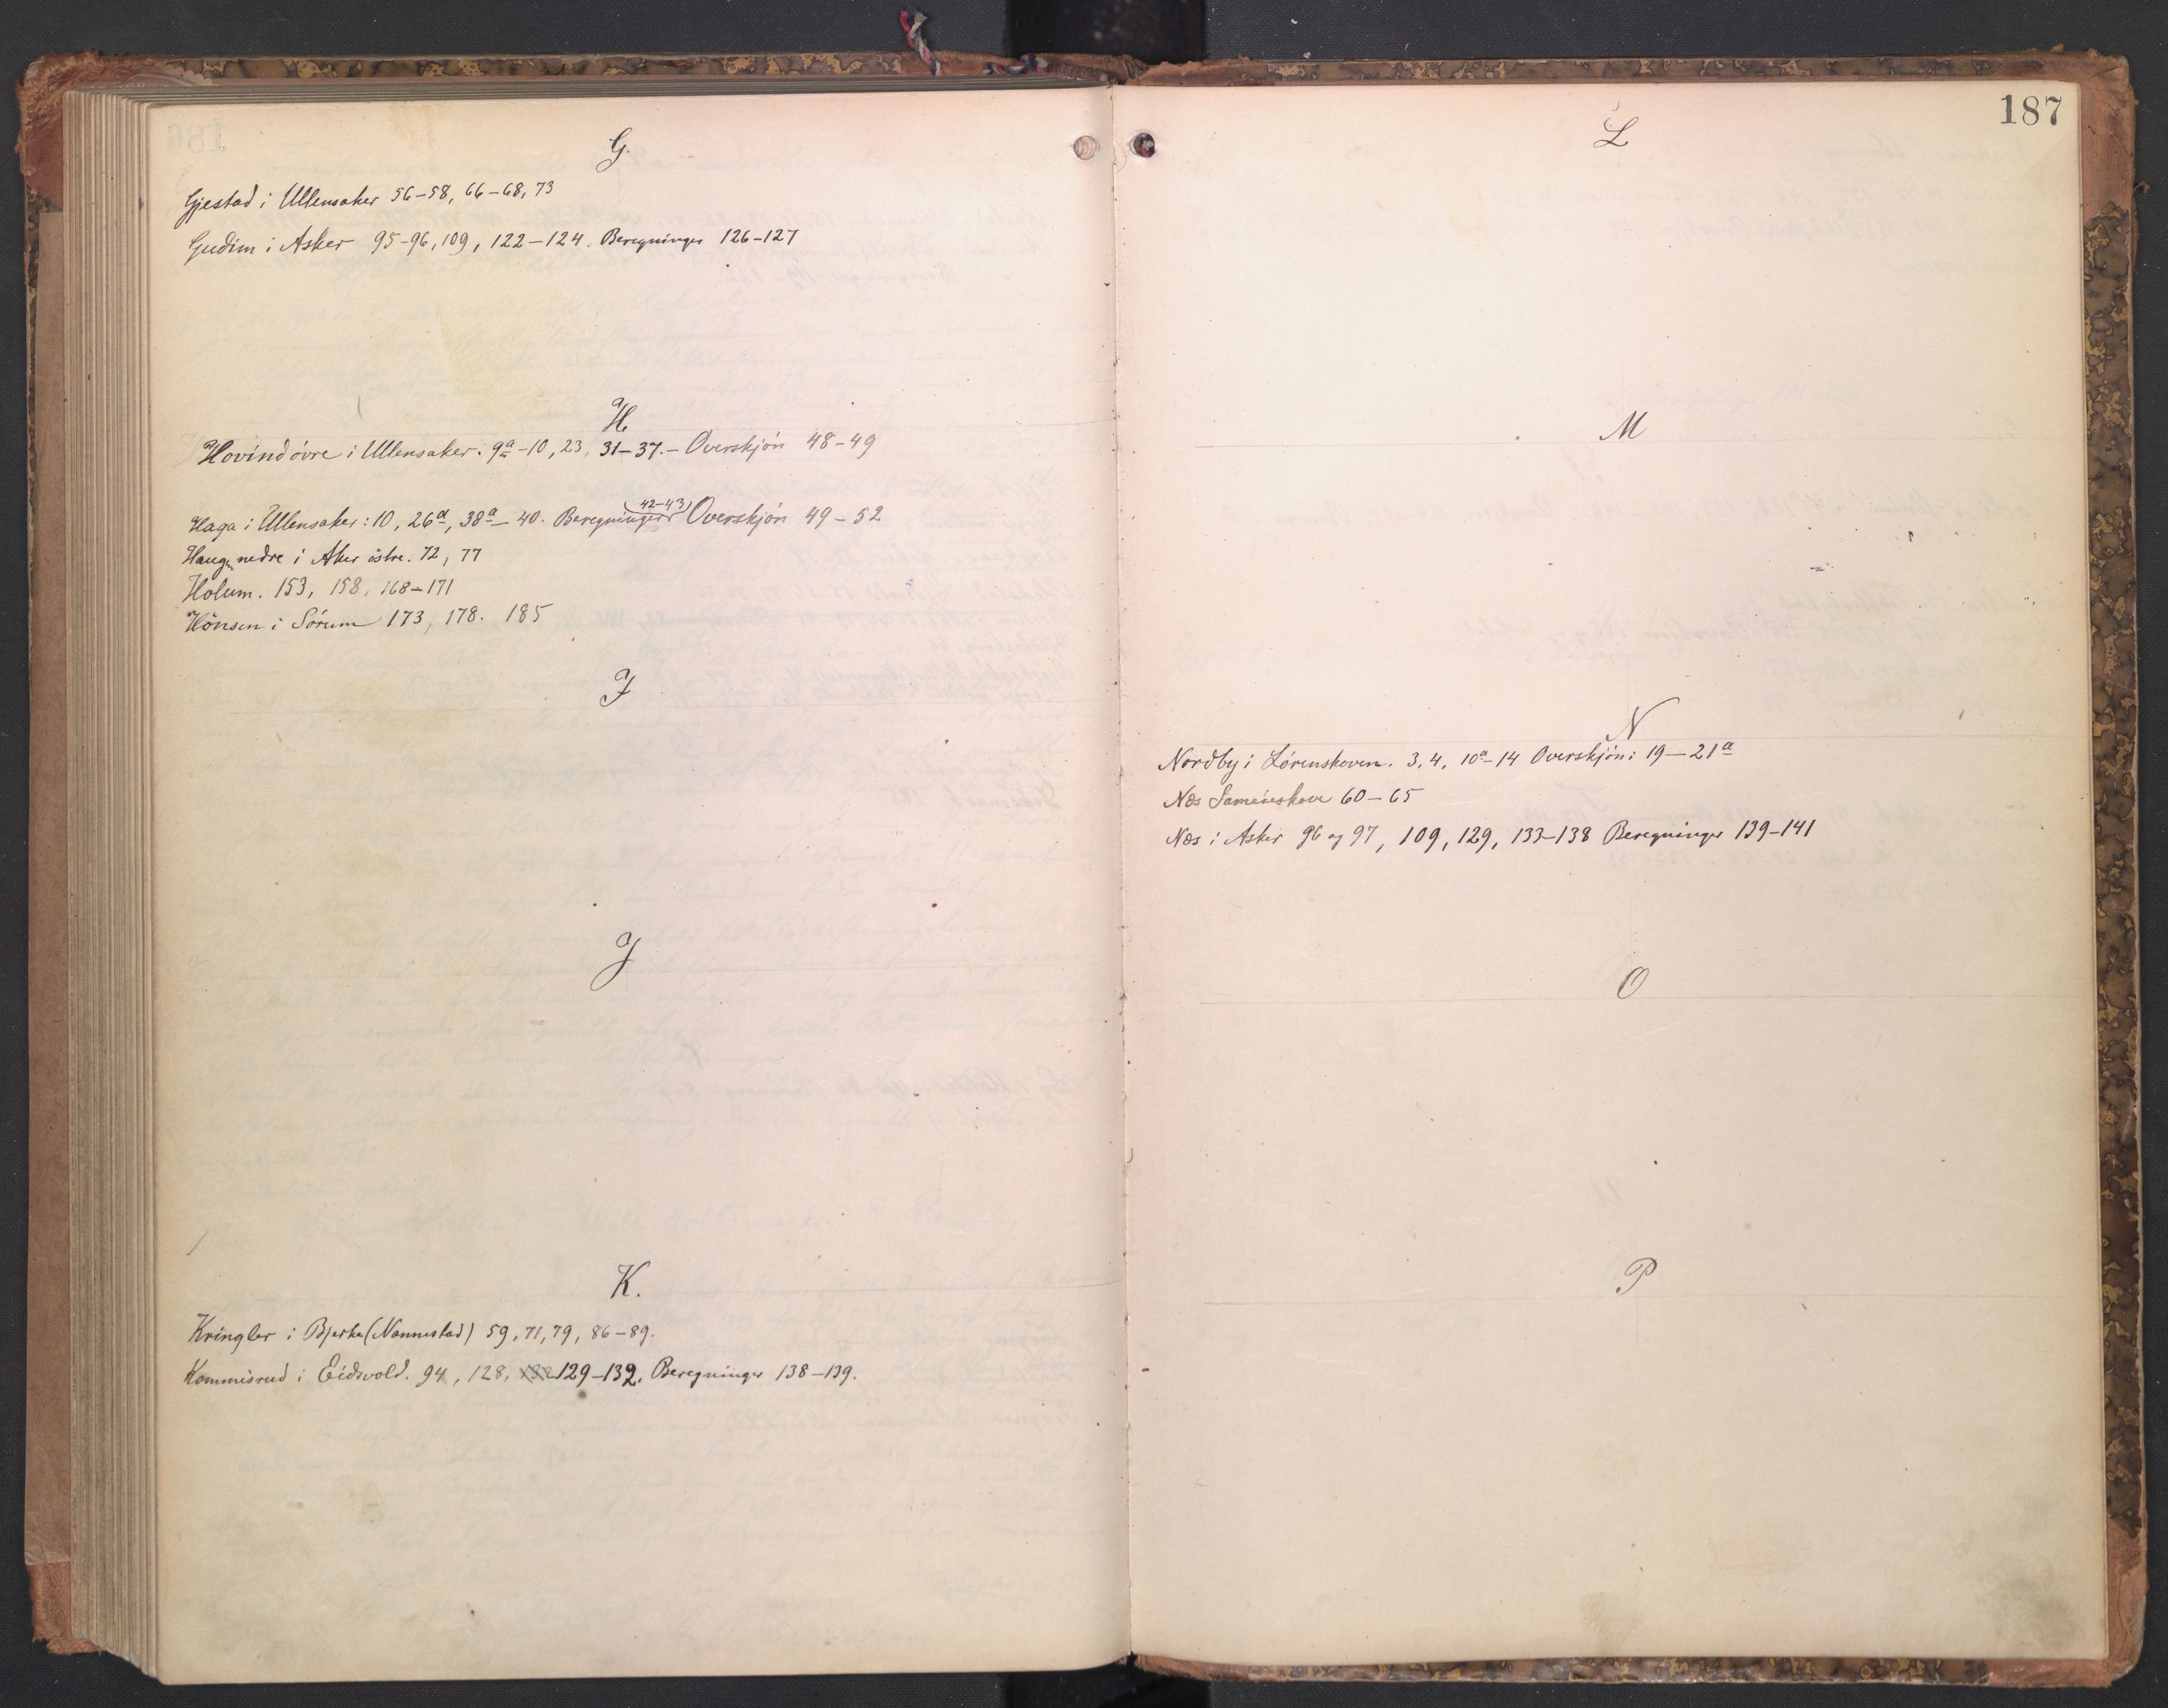 G.
Gjestad i Ullensaker 56-58, 66-68, 73
Gudim i Asker 95-96, 109, 122-124. Beregninger 126-127
H.
Hovind övre i Ullensaker. 9a-10, 23, 31-37.- Overskjön 48-49
Haga i Ullensaker: 10, 26a, 38a-40. Beregninger (42-43) Overskjön 49-52
Haug nedre i Aker östre. 72, 77
Holum. 153, 158, 168-171
Hönsen i Sörum 173, 178. 185
I
J
K.
Kringler i Bjerke (Nannestad) 59, 71, 79, 86-89.
Kommisrud i Eidsvold. 94, 128, 129-132. Beregninger 138-139.
187
L
M
N
Nordby i Lørenskoven. 3, 4, 10a-14 Overskjön: 19-21a
Næs Sameieskove 60-65
Næs i Asker 96 og 97, 109, 129, 133-138 Beregninger 139-141
O
P